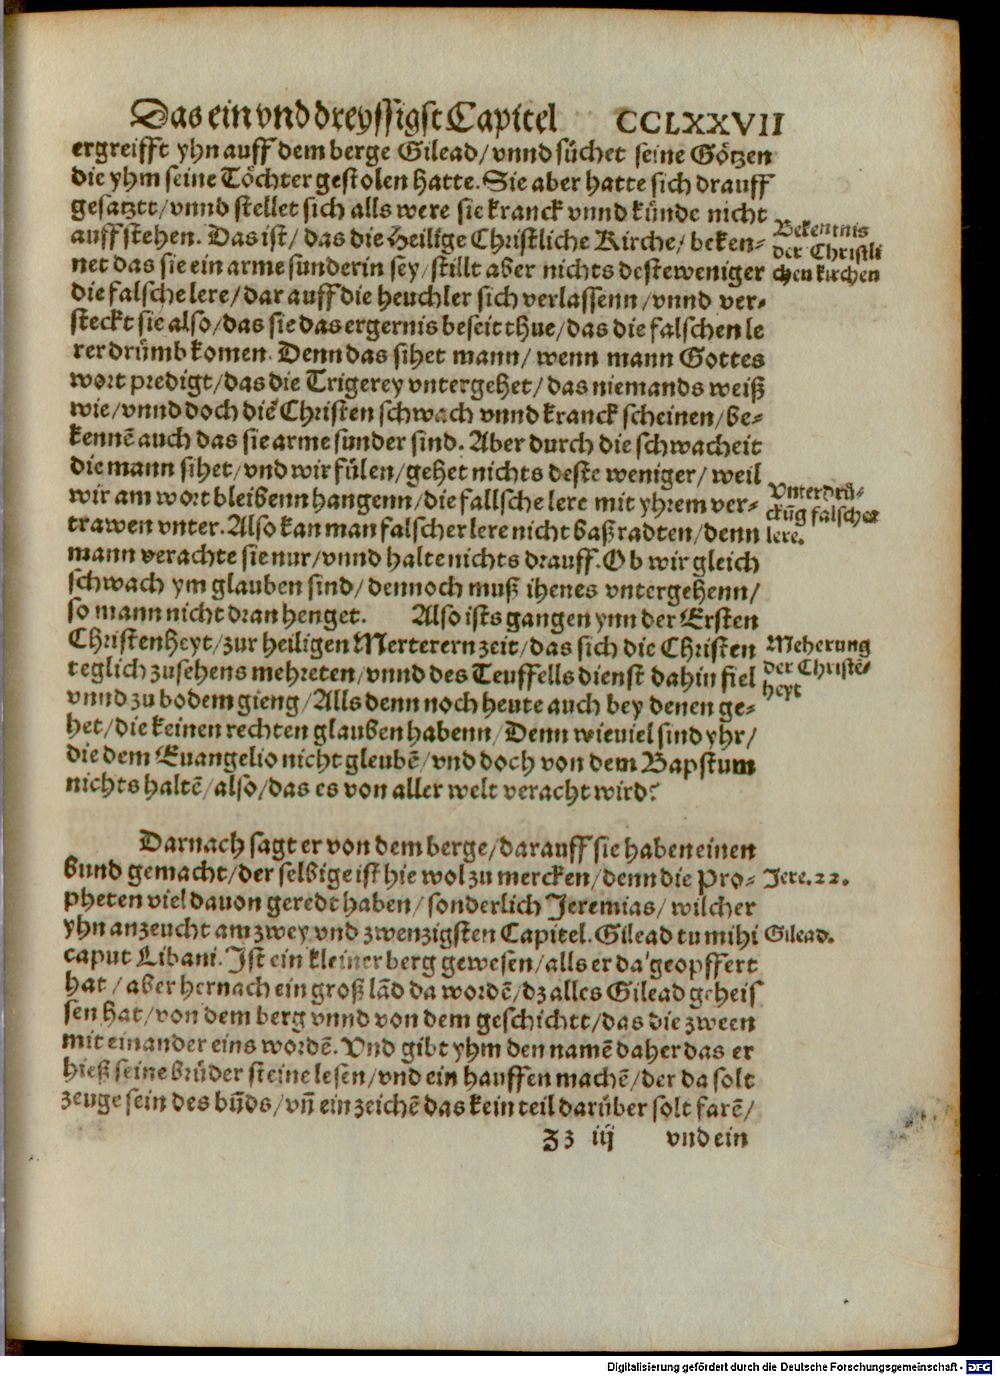 Das ein vnd dreyssigst Capitel CCLXXVII
ergreifft yhn auff dem berge Gilead/vnnd sůchet seine Götzen
die yhm seine Töchter gestolen hatte. Sie aber hatte sich drauff
gesatztt/vnnd stellet sich alls were sie kranck vnnd kůnde nicht
auff stehen. Das ist/ das die Heilige Christliche Kirche/ beken-
net das sie ein arme sunderin sey/stillt aber nichts desteweniger
die falsche lere/dar auff die heuchler sich verlassenn/vnnd ver-
steckt sie also/das sie das ergernis beseit thue/das die falschen le
rer drůmb komen. Denn das sihet mann/ wenn mann Gottes
wort predigt/das die Trigerey vntergehet/das niemands weiß
wie/vnnd doch die Christen schwach vnnd kranck scheinen/be-
kennē auch das sie arme sunder sind. Aber durch die schwacheit
die mann sihet/vnd wir fůlen/gehet nichts deste weniger/ weil
wir am wort bleibenn hangenn/die fallsche lere mit yhrem ver-
trawen vnter. Also kan man falscher lere nicht baß radten/denn
mann verachte sie nur/vnnd halte nichts drauff. Ob wir gleich
schwach ym glauben sind/dennoch muß ihenes vntergehenn/
so mann nicht dran henget. Also ists gangen ynn der Ersten
Christenheyt/zur heiligen Merterern zeit/das sich die Christen
teglich zusehens mehreten/vnnd des Teuffells dienst dahin fiel
vnnd zu bodem gieng/Alls denn noch heute auch bey denen ge-
het/die keinen rechten glauben habenn/Denn wieuiel sind yhr/
die dem Euangelio nicht gleubē/vnd doch von dem Bapstum
nichts haltē/also/das es von aller welt veracht wird?
Bekentnis
der Christli
chen kirchen
Vnterdrů-
ckūg falscher
lere.
Meherung
der Christē-
heyt
Darnach sagt er von dem berge/darauff sie haben einen
bund gemacht/der selbige ist hie wol zu mercken/denn die Pro-
pheten viel dauon geredt haben/sonderlich Jeremias/wilcher
yhn anzeucht am zwey vnd zwenzigsten Capitel. Gilead tu mihi
caput Libani. Ist ein kleiner berg gewesen/alls er da geopffert
hat/aber hernach ein groß lād da wordē/dz alles Gilead geheis
sen hat/von dem berg vnnd von dem geschichtt/das die zween
mit einander eins wordē. Vnd gibt yhm den namē daher das er
hieß seine brůder steine lesen/vnd ein hauffen machē/der da solt
zeuge sein des būds/vn̄ ein zeichē das kein teil darůber solt farē/
Jere.22.
Gilead.
Zz iij vnd ein
Digitalisierung gefördert durch die Deutsche Forschungsgemeinschaft - DFG